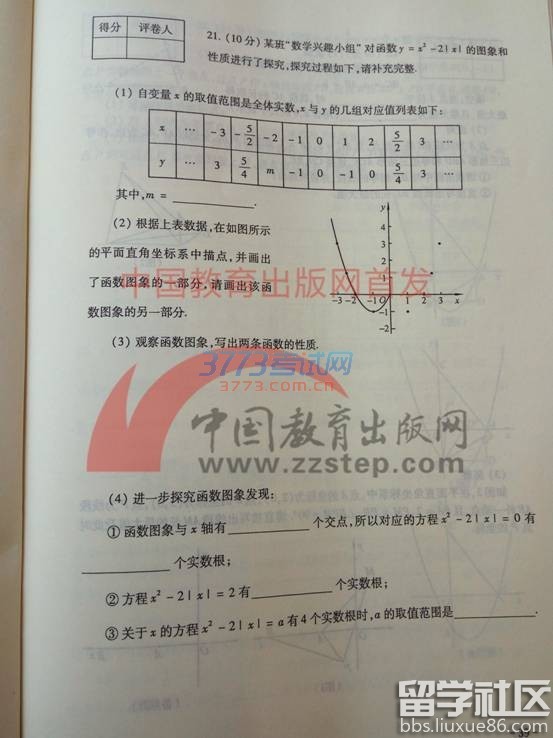 得分 评卷人
21. (10分) 某班"数学兴趣小组"对函数 y = x² - 2|x| 的图象和
性质进行了探究,探究过程如下,请补充完整.
(1) 自变量 x 的取值范围是全体实数, x 与 y 的几组对应值列表如下:
x … -3 -5/2 -2 -1 0 1 2 5/2 3 …
y … 3 5/4 m -1 0 -1 0 5/4 3 …
其中, m = ________.
(2) 根据上表数据,在如图所示
的平面直角坐标系中描点,并画出
了函数图象的一部分,请画出该函
数图象的另一部分.
(3) 观察函数图象,写出两条函数的性质.
y
4
3
2
1
-3 -2 -1 O 1 2 3 x
-1
-2
中国教育出版网首发
3773考试网
3773.com.cn
中国教育出版网
www.zzstep.com
(4) 进一步探究函数图象发现:
① 函数图象与 x 轴有________个交点,所以对应的方程 x² - 2|x| = 0 有
________个实数根;
② 方程 x² - 2|x| = 2 有________个实数根;
③ 关于 x 的方程 x² - 2|x| = a 有4个实数根时, a 的取值范围是________.
留学社区
bbs.liuxue86.com